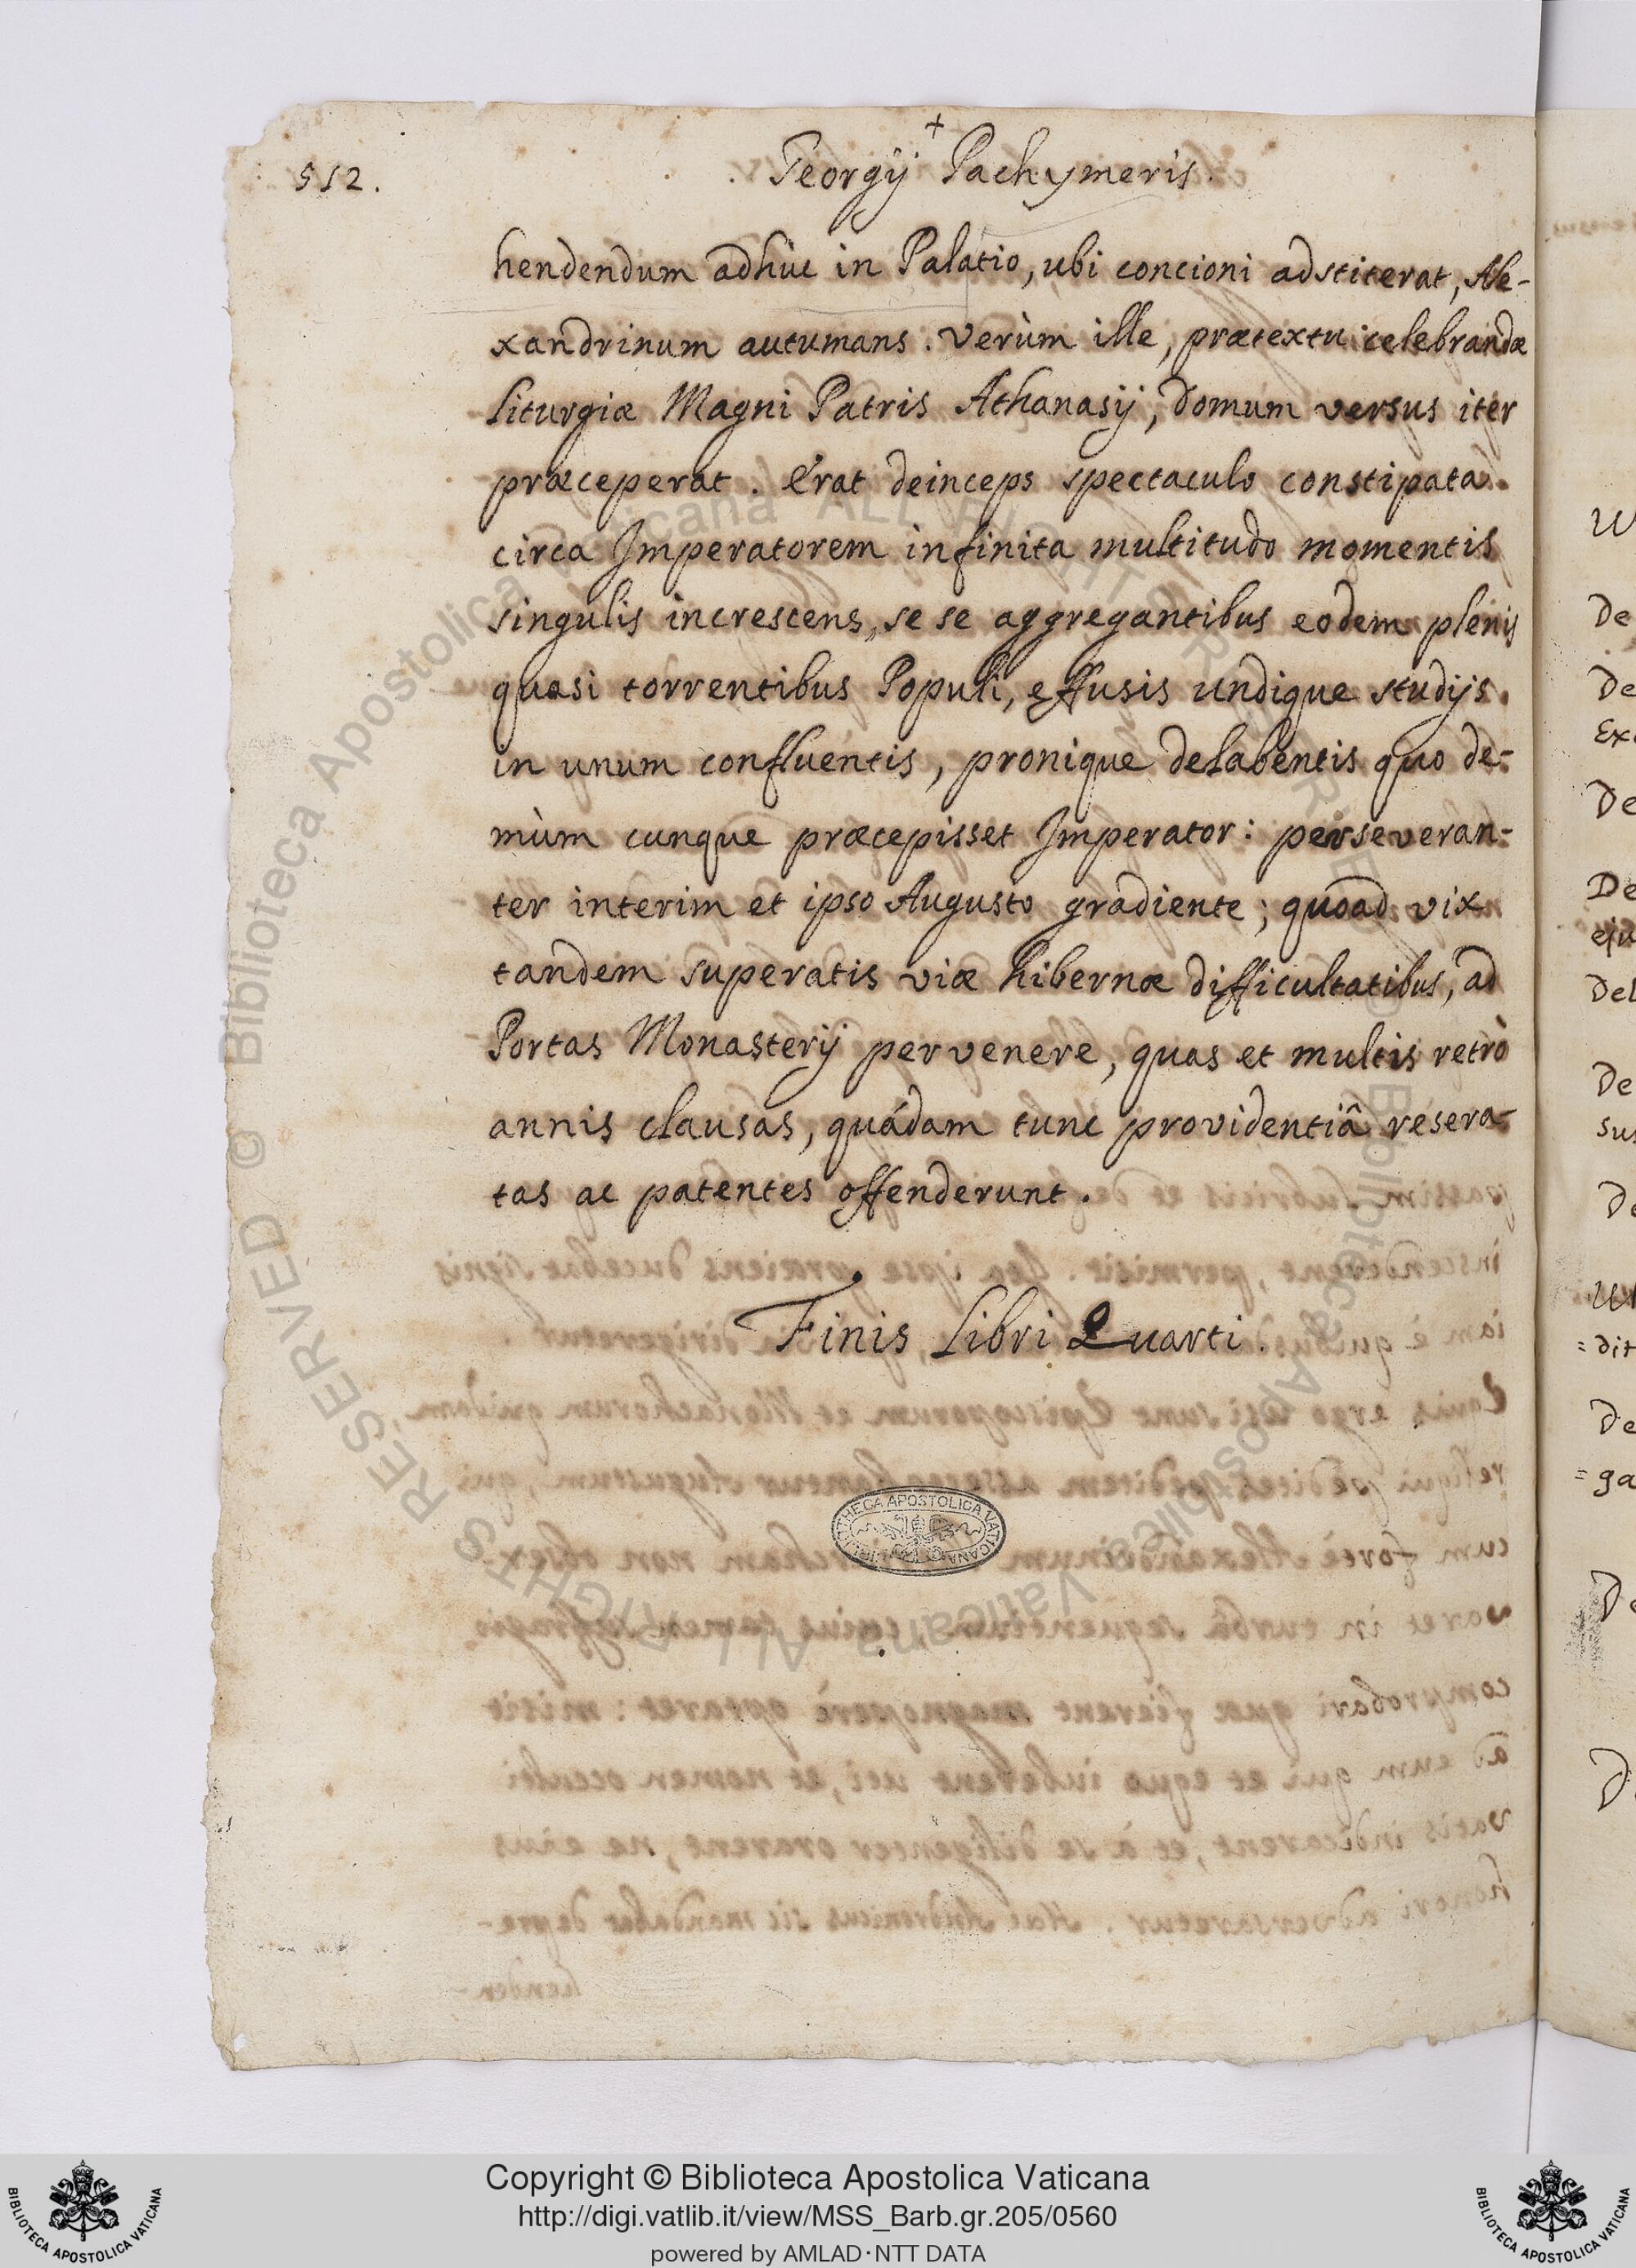 +
512.
Georgij Pachymeris.
hendendum adhùc in Palatio, ubi concioni adstiterat, Ale-
xandrinum autumans. Verùm ille, prætextu celebrandæ
Liturgiæ Magni Patris Athanasij, domum versus iter
præceperat. Erat deinceps spectaculo constipata
circa Imperatorem infinita multitudo momentis
singulis increscens, se se aggregantibus eodem plenis
quasi torrentibus Populi, effusis undique studijs
in unum confluentis, pronique delabentis quo de-
mùm cunque præcepisset Imperator: perseveran-
ter interim et ipso Augusto gradiente; quoad vix
tandem superatis viæ hibernæ difficultatibus, ad
Portas Monasterij pervenere, quas et multis retrò
annis clausas, quádam tunc providentiâ resera-
tas ac patentes offenderunt.
Finis Libri Quarti.
BIBLIOTHECA APOSTOLICA VATICANA
De
De
De
De
De
De
=dit
De
=ga
Biblioteca Apostolica Vaticana ALL RIGHTS RESERVED ©
Copyright © Biblioteca Apostolica Vaticana
http://digi.vatlib.it/view/MSS_Barb.gr.205/0560
powered by AMLAD·NTT DATA
BIBLIOTECA APOSTOLICA VATICANA
BIBLIOTECA APOSTOLICA VATICANA